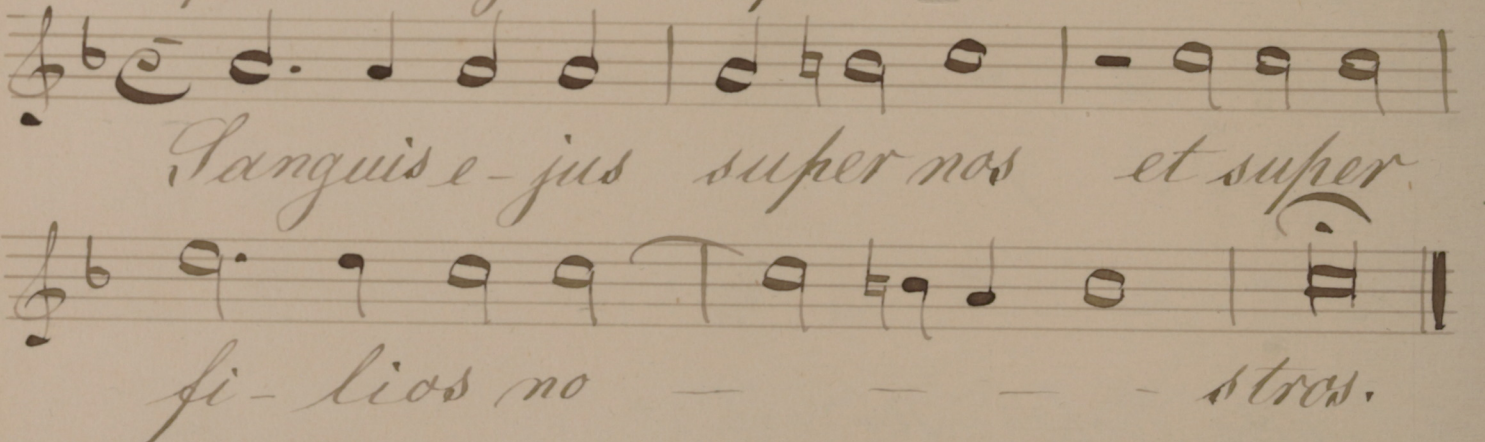 Sanguis e - jus super nos et super
fi - lios no - - - - stros.